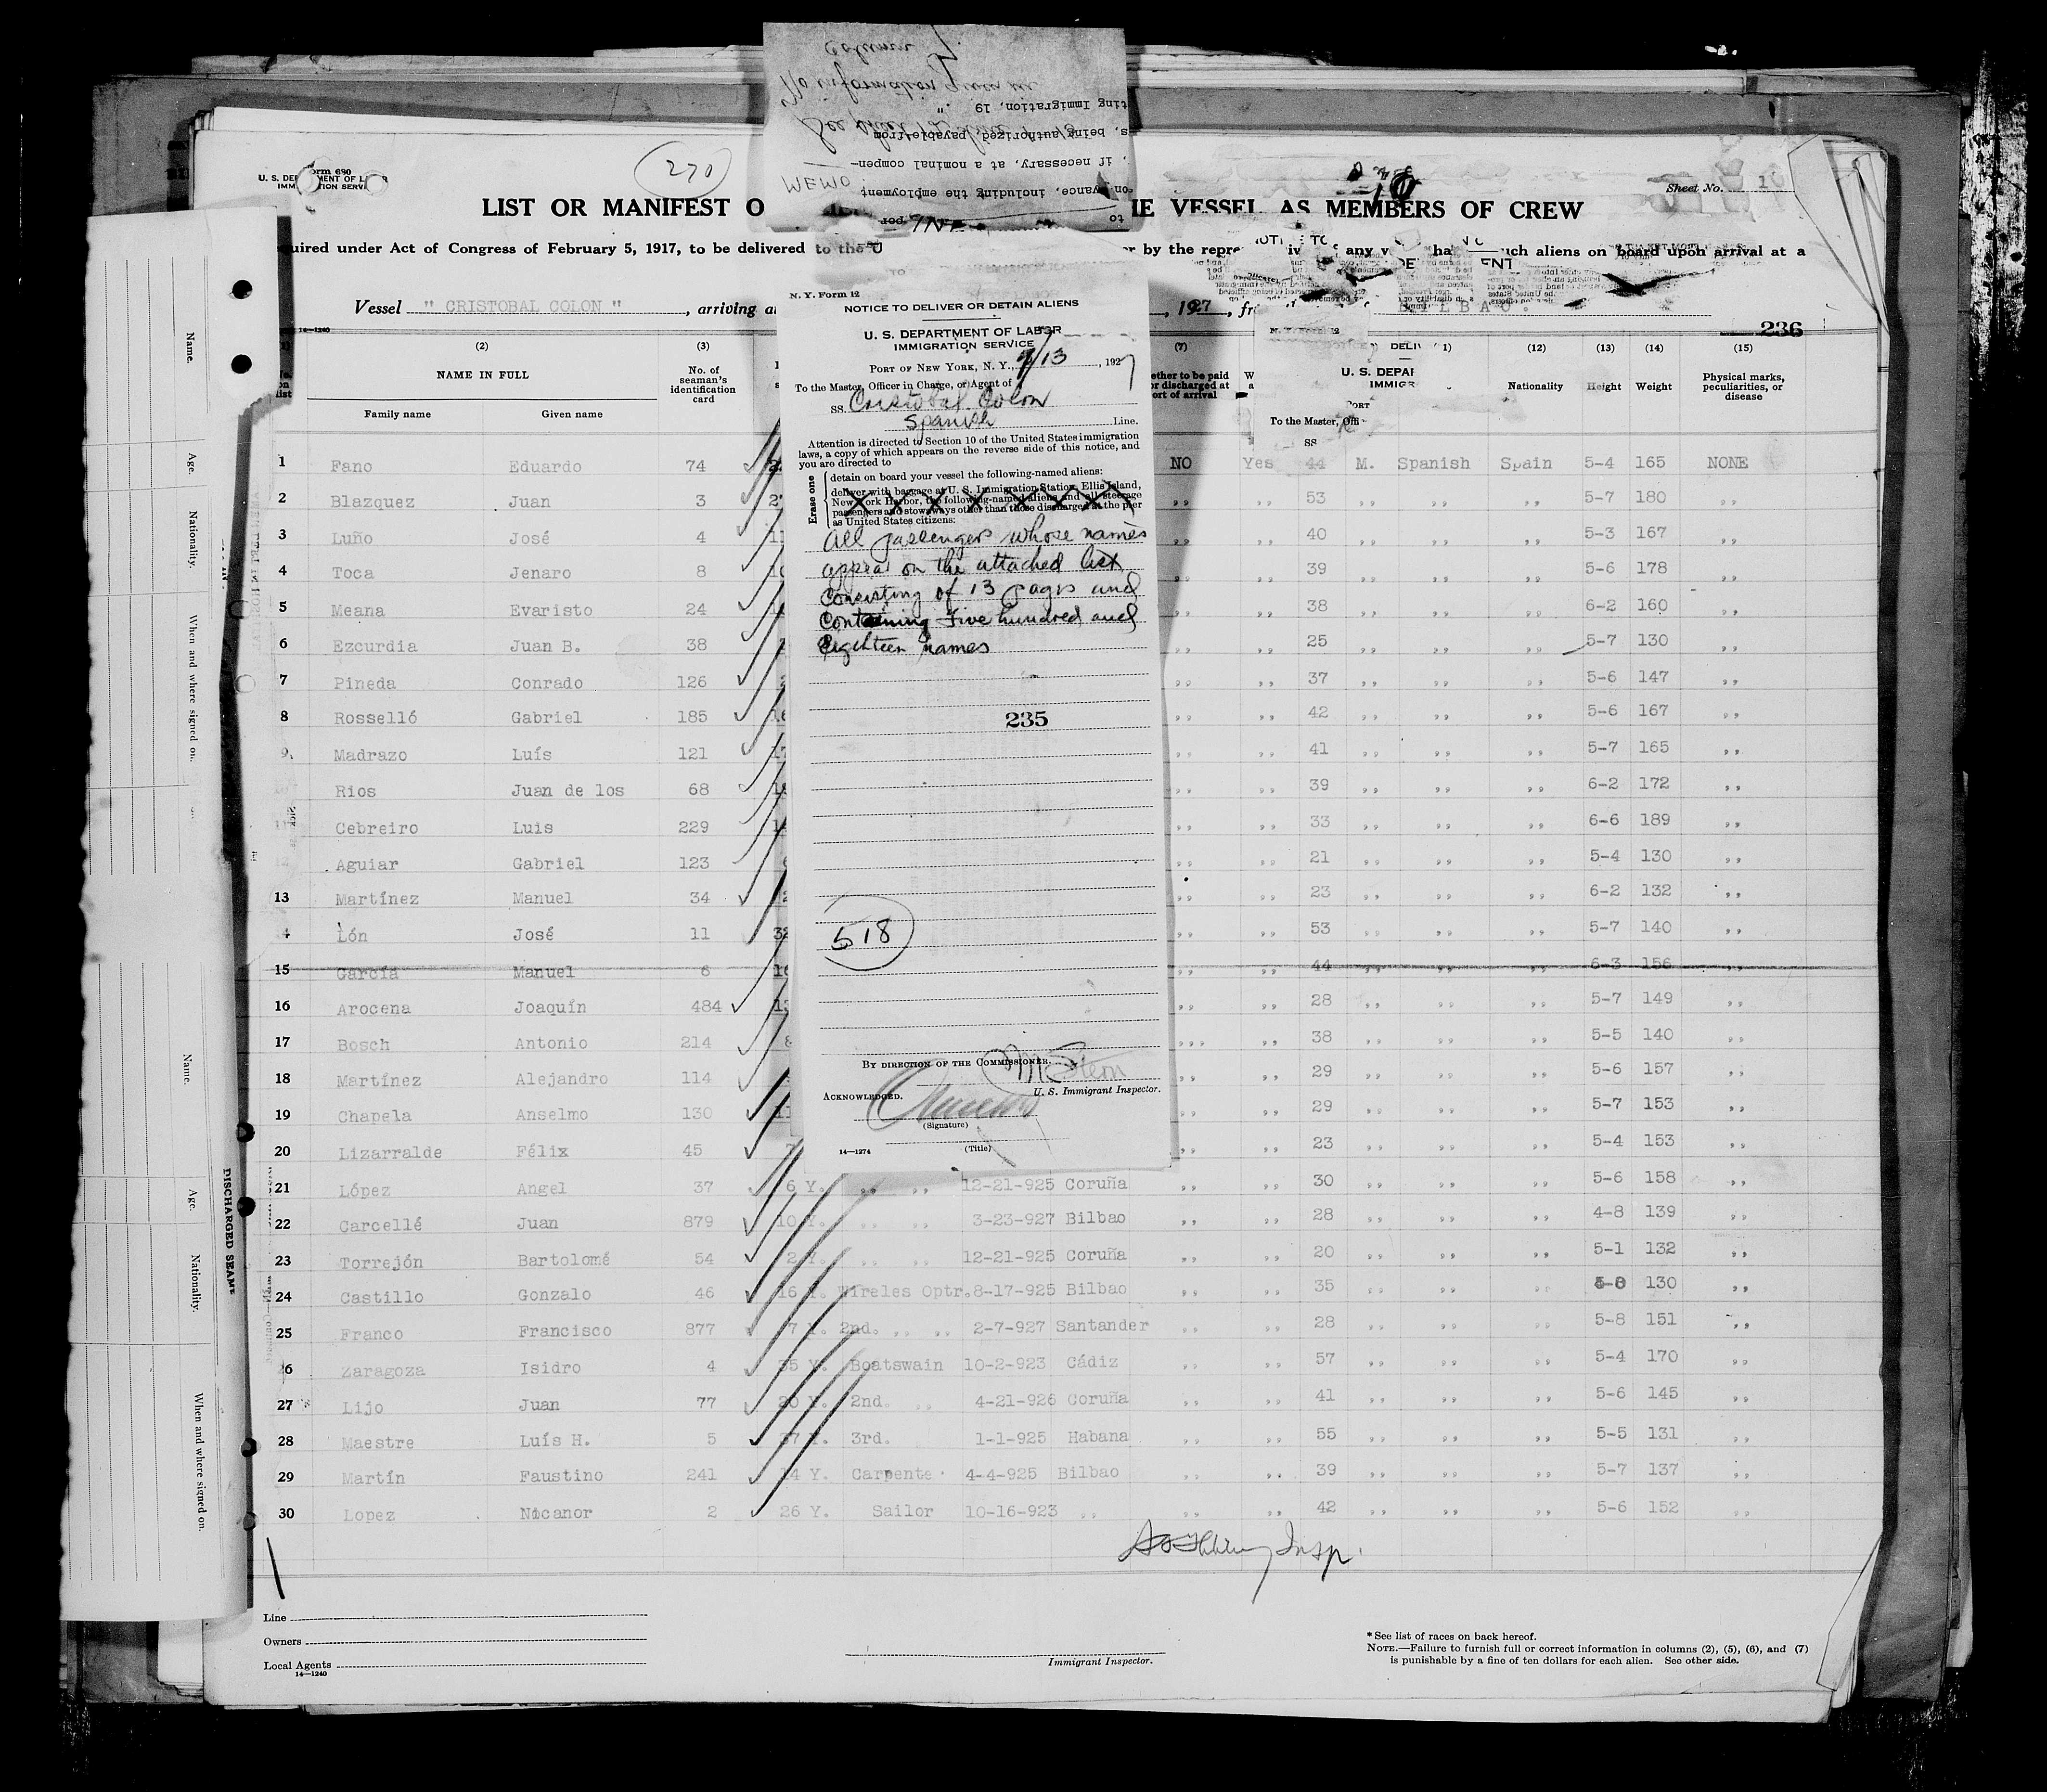 column
No information given in
ting Immigration, 19 ."
See
s, being authorized, payable from
, if necessary, at a nominal compen-
MEMO
onveyance, including the employment
to
270
Form 680
U. S. DEPARTMENT OF LABOR
IMMIGRATION SERVICE
Sheet No. 10
LIST OR MANIFEST O HE VESSEL AS MEMBERS OF CREW
quired under Act of Congress of February 5, 1917, to be delivered to the U r by the repre any v such aliens on board upon arrival at a
Vessel " CRISTOBAL COLON ", arriving at , 1927, fr BILBAO.
14—1240
236
(2) (3) (7) (12) (13) (14) (15)
NAME IN FULL
No. of seaman's identification card
Whether to be paid or discharged at port of arrival
Nationality Height Weight Physical marks, peculiarities, or disease
Family name Given name
1 Fano Eduardo 74 NO Yes 44 M. Spanish Spain 5-4 165 NONE
2 Blazquez Juan 3 ,, ,, 53 ,, ,, ,, 5-7 180 ,,
3 Luño José 4 ,, ,, 40 ,, ,, ,, 5-3 167 ,,
4 Toca Jenaro 8 ,, ,, 39 ,, ,, ,, 5-6 178 ,,
5 Meana Evaristo 24 ,, ,, 38 ,, ,, ,, 6-2 160 ,,
6 Ezcurdia Juan B. 38 ,, ,, 25 ,, ,, ,, 5-7 130 ,,
7 Pineda Conrado 126 ,, ,, 37 ,, ,, ,, 5-6 147 ,,
8 Rosselló Gabriel 185 ,, ,, 42 ,, ,, ,, 5-6 167 ,,
9 Madrazo Luís 121 ,, ,, 41 ,, ,, ,, 5-7 165 ,,
Rios Juan de los 68 ,, ,, 39 ,, ,, ,, 6-2 172 ,,
Cebreiro Luis 229 ,, ,, 33 ,, ,, ,, 6-6 189 ,,
Aguiar Gabriel 123 ,, ,, 21 ,, ,, ,, 5-4 130 ,,
13 Martínez Manuel 34 ,, ,, 23 ,, ,, ,, 6-2 132 ,,
4 Lón José 11 ,, ,, 53 ,, ,, ,, 5-7 140 ,,
15 García Manuel 6 ,, ,, 44 ,, ,, ,, 6-3 156 ,,
16 Arocena Joaquín 484 ,, ,, 28 ,, ,, ,, 5-7 149 ,,
17 Bosch Antonio 214 ,,, ,, 38 ,, ,, ,, 5-5 140 ,,
18 Martínez Alejandro 114 ,, ,, 29 ,, ,, ,, 5-6 157 ,,
19 Chapela Anselmo 130 ,, ,, 29 ,, ,, ,, 5-7 153 ,,
20 Lizarralde Félix 45 ,, ,, 23 ,, ,, ,, 5-4 153 ,,
21 López Angel 37 6 Y. ,, ,, 12-21-925 Coruña ,, ,, 30 ,, ,, ,, 5-6 158 ,,
22 Carcellé Juan 879 10 Y. ,, ,, 3-23-927 Bilbao ,, ,, 28 ,, ,, ,, 4-8 139 ,,
23 Torrejón Bartolomé 54 2 Y. ,, ,, 12-21-925 Coruña ,, ,, 20 ,, ,, ,, 5-1 132 ,,
24 Castillo Gonzalo 46 16 Y. Wireles Optr. 8-17-925 Bilbao ,, ,, 35 ,, ,, ,, 130 ,,
25 Franco Francisco 877 7 Y. 2nd. ,, ,, 2-7-927 Santander ,, ,, 28 ,, ,, ,, 5-8 151 ,,
26 Zaragoza Isidro 4 35 Y. Boatswain 10-2-923 Cádiz ,, ,, 57 ,, ,, ,, 5-4 170 ,,
27 Lijo Juan 77 20 Y. 2nd. ,, 4-21-926 Coruña ,, ,, 41 ,, ,, ,, 5-6 145 ,,
28 Maestre Luís H. 5 37 Y. 3rd. 1-1-925 Habana ,, ,, 55 ,, ,, ,, 5-5 131 ,,
29 Martín Faustino 241 14 Y. Carpente 4-4-925 Bilbao ,, ,, 39 ,, ,, ,, 5-7 137 ,,
30 Lopez Nicanor 2 26 Y. Sailor 10-16-923 ,, ,, ,, 42 ,, ,, ,, 5-6 152 ,,
Insp.
Line
Owners
Local Agents
14—1240
Immigrant Inspector.
* See list of races on back hereof.
NOTE.—Failure to furnish full or correct information in columns (2), (5), (6), and (7)
is punishable by a fine of ten dollars for each alien. See other side.
N. Y. Form 12
NOTICE TO DELIVER OR DETAIN ALIENS
U. S. DEPARTMENT OF LABOR
IMMIGRATION SERVICE
PORT OF NEW YORK, N. Y., 9/13, 1927
To the Master, Officer in Charge, or Agent of
SS. Cristobal Colon
Spanish Line.
Attention is directed to Section 10 of the United States immigration
laws, a copy of which appears on the reverse side of this notice, and
you are directed to
Erase one
detain on board your vessel the following-named aliens:
deliver with baggage at U. S. Immigration Station, Ellis Island,
New York Harbor, the following-named aliens and all steerage
passengers and stowaways other than those discharged at the pier
as United States citizens:
All passengers whose names
appear on the attached list
consisting of 13 pages and
containing Five hundred and
eighteen names
235
518
BY DIRECTION OF THE COMMISSIONER.
M Stern
U. S. Immigrant Inspector.
ACKNOWLEDGED.
(Signature)
(Title)
14—1274
U. S. DEPAR
IMMIGR
PORT
To the Master, Offi
SS
Name.
Age.
Nationality.
When and where signed on.
Name.
Age.
Nationality.
When and where signed on.
DISCHARGED SEAME